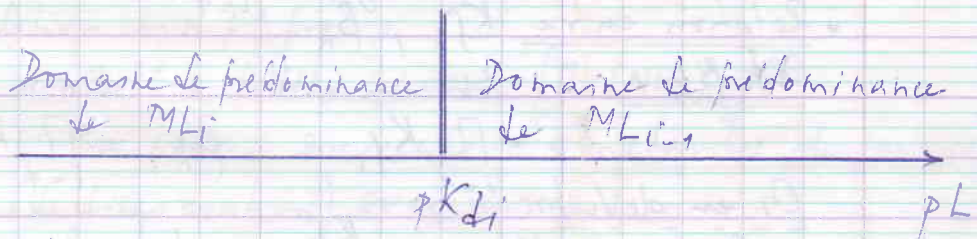 Domaine de prédominance
de MLi
Domaine de prédominance
de MLi-1
pKdi
pL